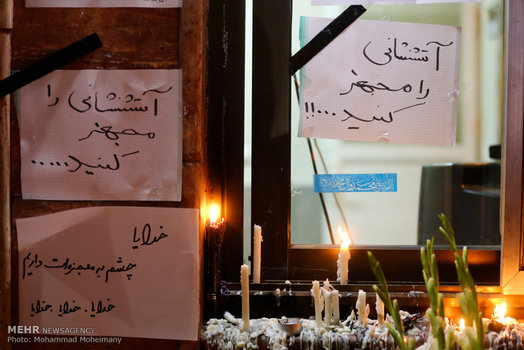 آتشنشانی را
مجهز
کنید.....
آتشنشانی
را مجهز
کنید...!!
خدایا
چشم به معجزه‌ات داریم
خدایا. خدایا. خدایا
MEHR NEWSAGENCY
© Photo: Mohammad Moheimany